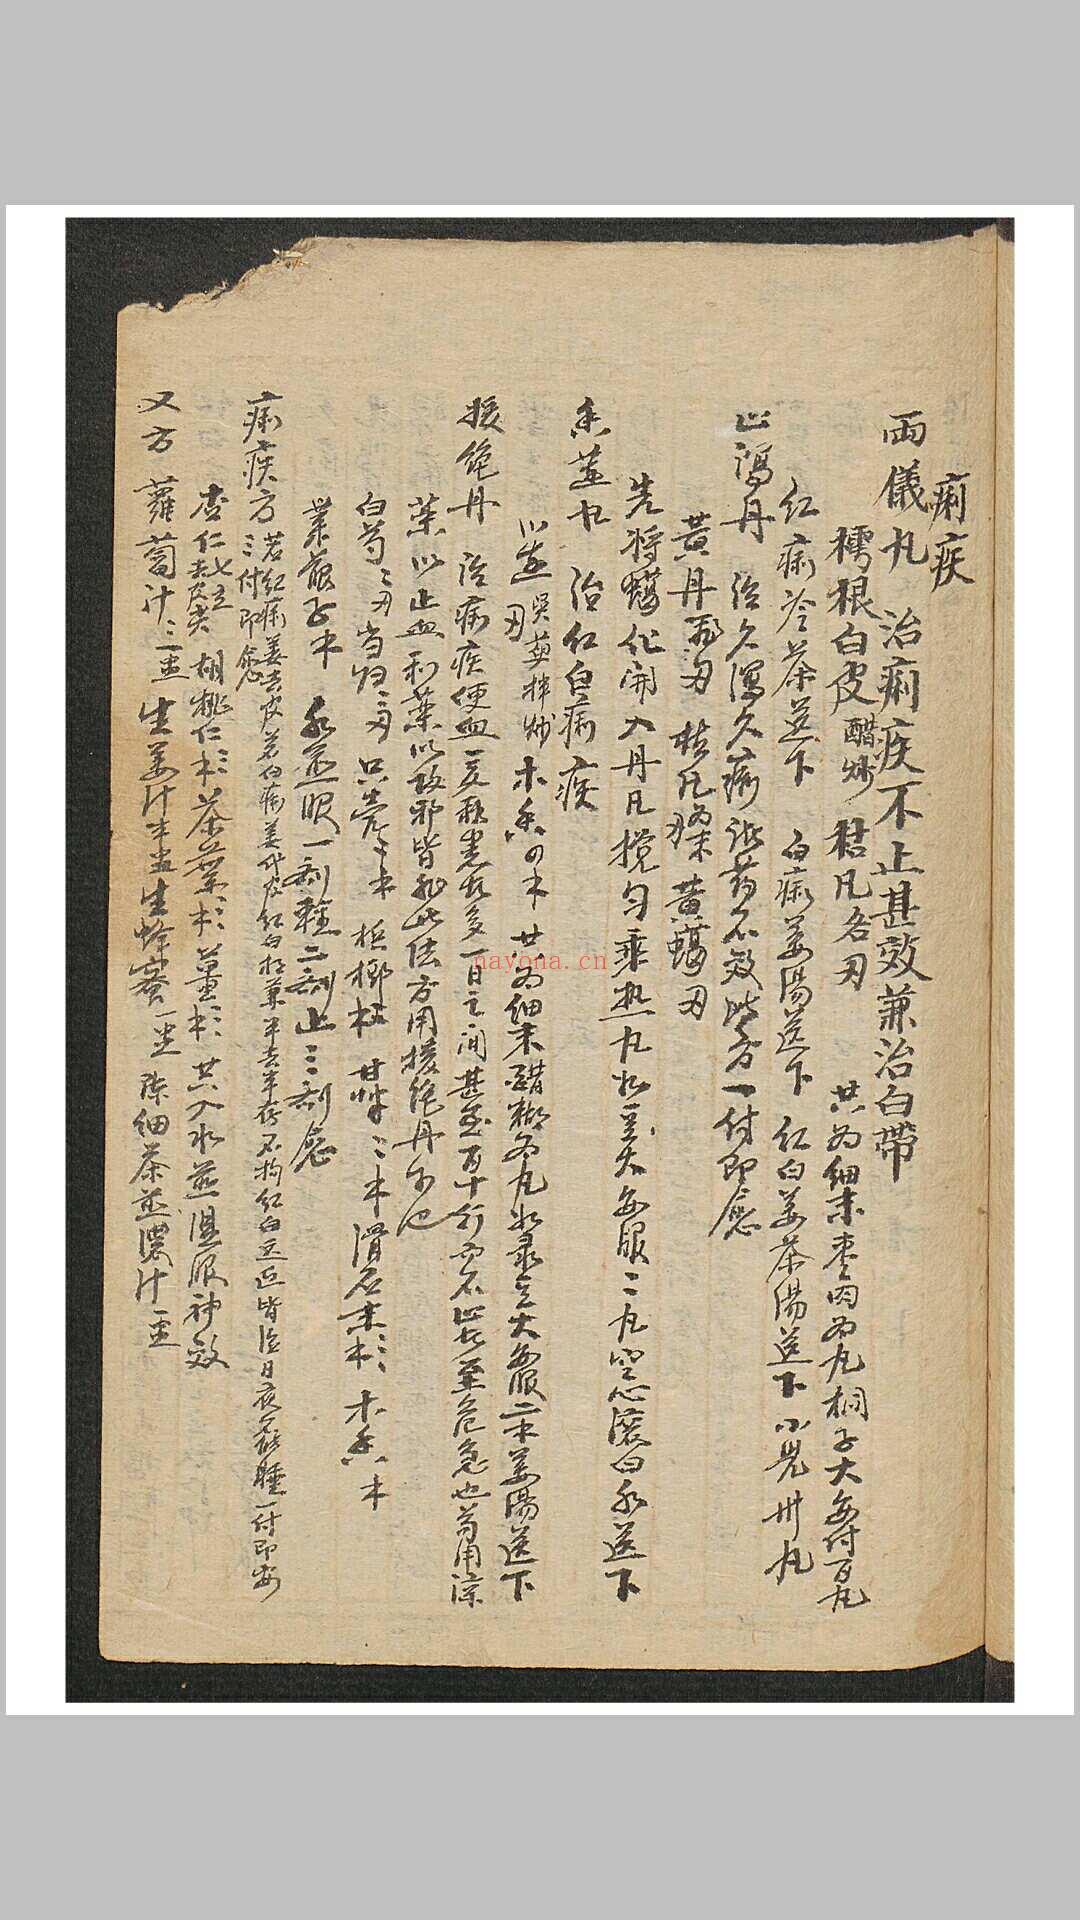 痢疾
兩儀丸 治痢疾不止甚效兼治白帶
樗根白皮醋炒 枯凡各刄 共为細末枣肉为丸桐子大每付百丸
红痢冷茶送下 白痢姜湯送下 红白姜茶湯送下 小児卅丸
止瀉丹 治久瀉久痢 諸药不效此方一付即愈
黄丹刄 枯凡刄为末 黄蠟刄
先将蠟化開入丹凡搅匀乘热丸如豆大每服二丸空心滾白水送下
香連丸 治红白痢疾
川連刄吳萸拌炒 木香四 共为細末醋糊为丸如菉豆大每服二 姜湯送下
援绝丹 治痢疾便血 一日之间甚至百十行而不止者至危急也若用涼
藥以止血利藥以攻邪皆非此法方用援绝丹可也
白芍三刄 当归三刄 只壳 梹榔 甘草 滑石末 木香
菜菔子 水煎服一剂輕二剂止三剂愈
痢疾方 若红痢姜去皮若白痢姜带皮红白相兼半去半存不拘红白远近皆治日夜不能睡一付即安
三付即愈
杏仁七粒去皮尖 胡桃仁 茶葉 薑 共入水煎温服神效
又方 蘿蔔汁二盅 生姜汁半盅 生蜂蜜一盅 陈細茶煎濃汁一盅
nayona.cn